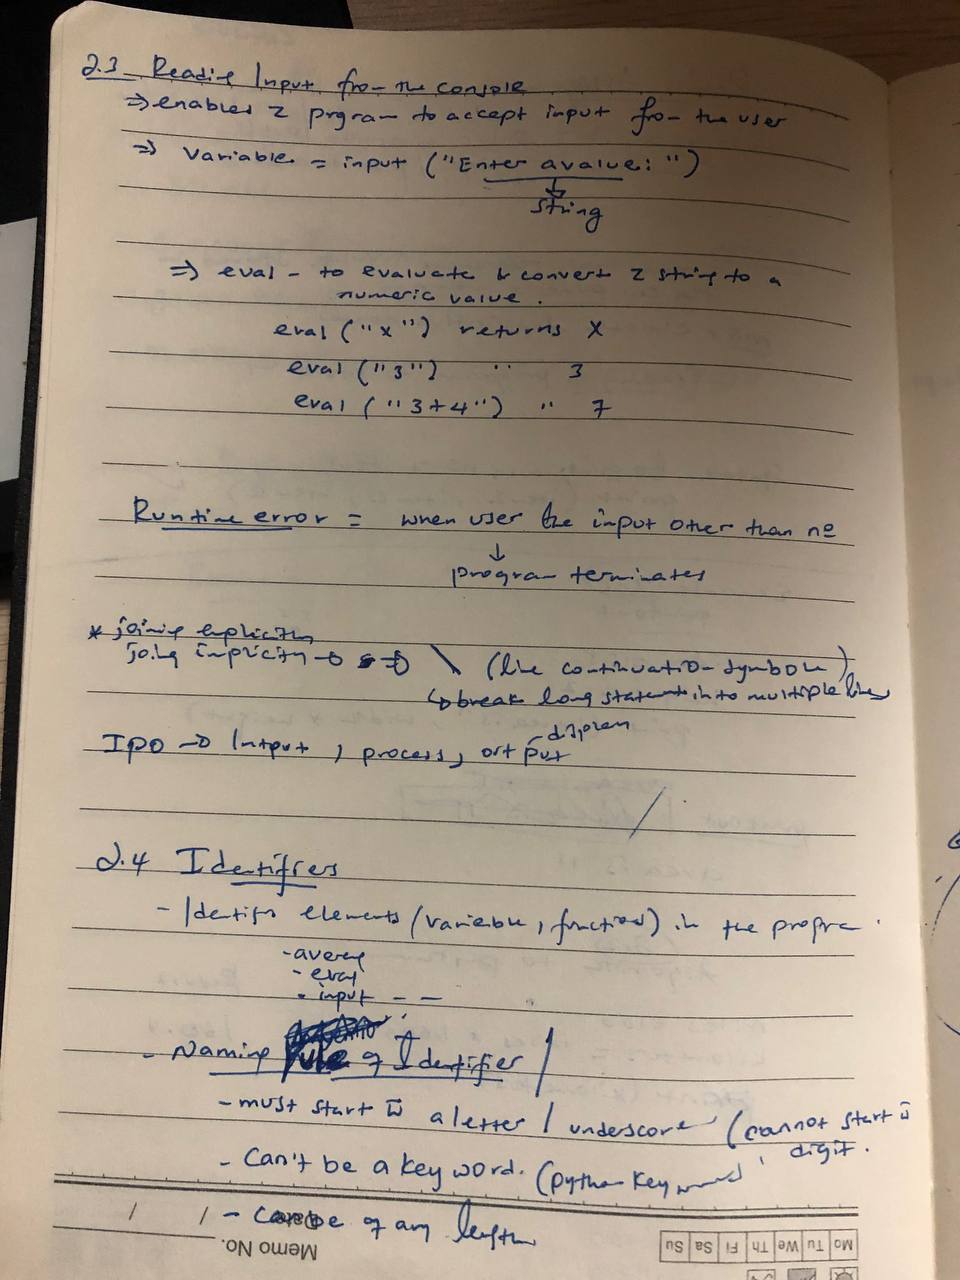 2.3 Reading Input from the console
⇒ enables z prgram to accept input from the user
⇒ Variable = input ("Enter a value: ")
↓
String
⇒ eval - to evaluate & convert z string to a
numeric value.
eval ("x") returns x
eval ("3") " 3
eval ("3+4") " 7
Runtime error = when user the input other than no
↓
program terminates
* joining explicitly
joing implicity → ⇒ \ (line continuation symbole)
↳ break long statements into multiple lines
display
IPO → Intput, process, output
2.4 Identifiers
- Identify elements (variable, function) in the program
- average
- eval
- input - -
- Naming rule of Identifier
- must start w̄ a letter / underscore (cannot start w̄
digit.
- Can't be a key word. (python keyword)
- can be of any length
Memo No.
Date / /
Mo Tu We Th Fr Sa Su